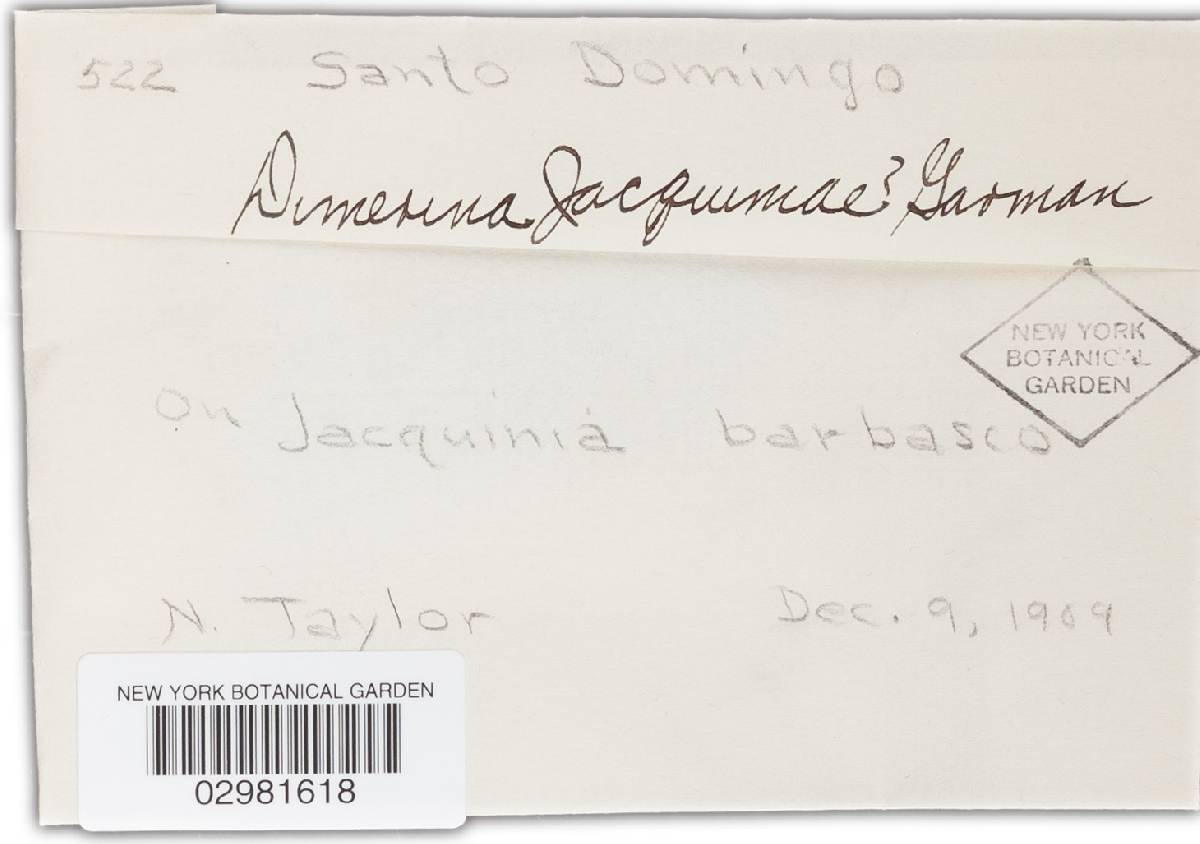 522 Santo Domingo
Dimerina Jacquiniae? Garman
NEW YORK
BOTANICAL
GARDEN
On Jacquinia barbasco
N. Taylor Dec. 9, 1909
NEW YORK BOTANICAL GARDEN
02981618